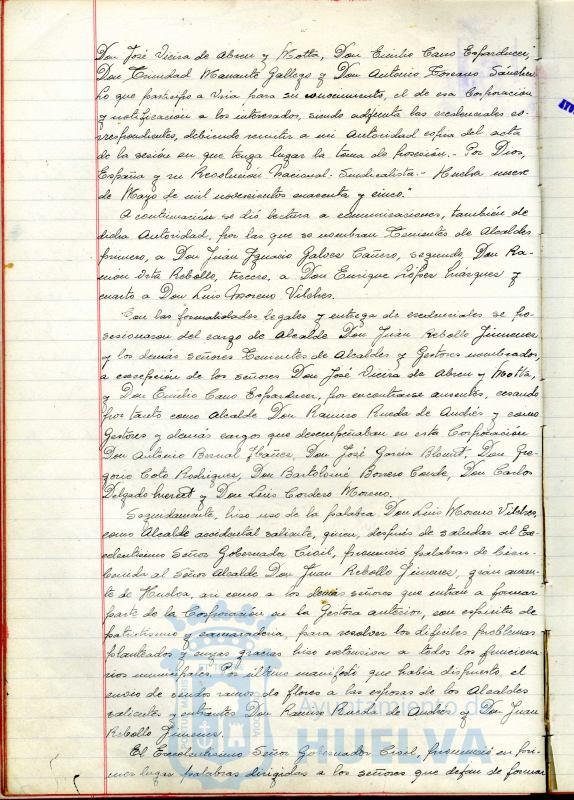 Don José Vieira de Abreu y Motta, Don Emilio Cano Esparducer,
Don Trinidad Manante Gallego y Don Antonio Toscano Sánchez.
Lo que participo a Vsia, para su conocimiento, el de esa Corporación
y notificación a los interesados, siendo adjunta las credenciales co-
rrespondientes, debiendo remitir a mi Autoridad copia del acta
de la sesión en que tenga lugar la toma de posesión.- Por Dios,
España y su Revolución Nacional-Sindicalista.- Huelva nueve
de Mayo de mil novecientos cuarenta y cinco."
A continuación se dió lectura a comunicaciones, también de
dicha Autoridad, por las que se nombran Tenientes de Alcaldes
primero, a Don Juan Ignacio Galvez Cañero, segundo, Don Ra-
món Rebollo, tercero, a Don Enrique López Márquez y
cuarto a Don Luis Moreno Vilches.
Con las formalidades legales y entrega de credenciales se po-
sesionaron del cargo de Alcalde Don Juan Rebollo Jimenez
y los demás señores Tenientes de Alcaldes y Gestores nombrados,
a excepción de los señores Don José Vieira de Abreu y Motta,
y Don Emilio Cano Esparducer, por encontrarse ausentes, cesando
por tanto como Alcalde Don Ramiro Rueda de Andrés y como
Gestores y demás cargos que desempeñaban en esta Corporación
Don Antonio Bernal Ibañez, Don José Garcia Don Gre-
gorio Coto Rodriguez, Don Bartolomé Borrero Conde, Don Carlos
Delgado y Don Luis Cordero Moreno.
Seguidamente, hizo uso de la palabra Don Luis Moreno Vilches,
como Alcalde accidental saliente, quien, después de saludar al Ex-
celentísimo Señor Gobernador Civil, pronunció palabras de bien-
benida al Señor Alcalde Don Juan Rebollo Jimenez, gran aman-
te de Huelva, asi como a los demás señores que entran a formar
parte de la Corporación en la Gestora anterior, con espiritu de
patriotismo y camaraderia, para resolver los dificiles problemas
planteados y cuyas gracias hizo extensiva a todos los funciona-
rios municipales. Por último manifestó que habia dispuesto, el
envio de sendos ramos de flores a las esposas de los Alcaldes
salientes y entrantes Don Ramiro Rueda de Andrés y Don Juan
Rebollo Jimenez.
El Excelentisimo Señor Gobernador Civil, pronunció en pri-
mer lugar palabras dirigidas a los señores que dejan de formar
Ayuntamiento de
HUELVA